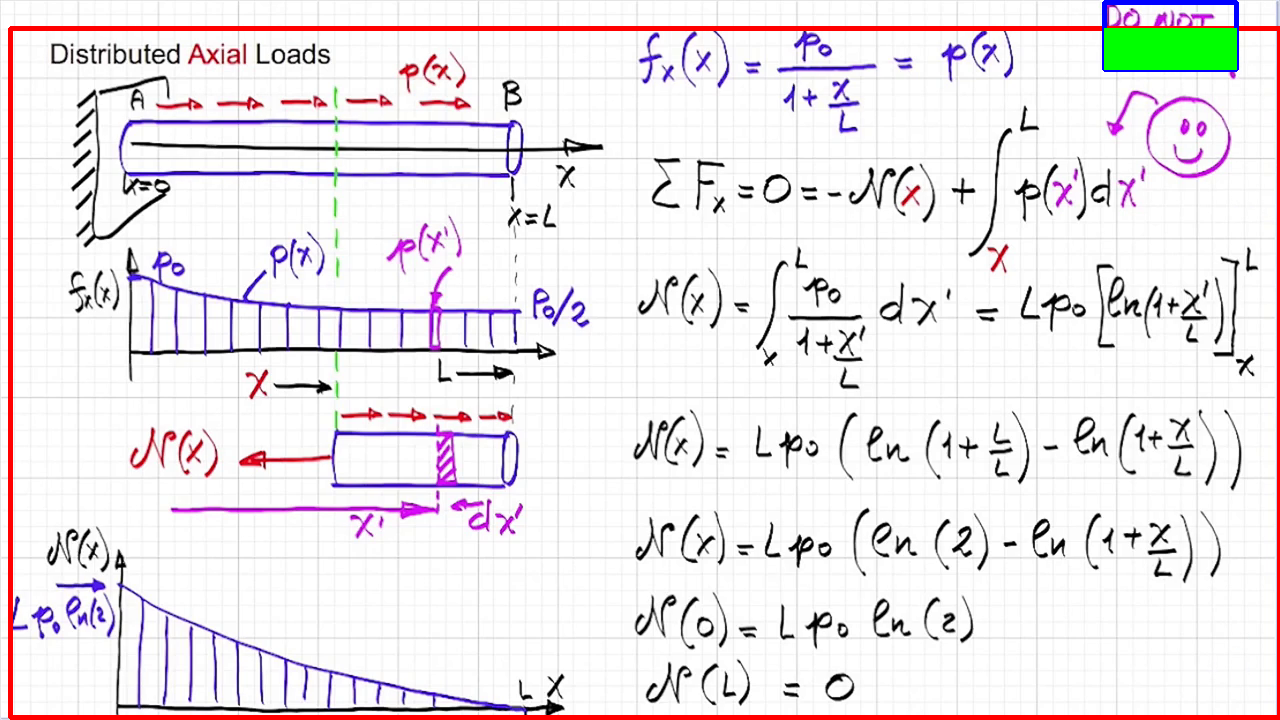 DO NOT
Distributed Axial Loads
p(x)
A
B
x=0
x
x=L
fₓ(x)
p₀
p(x)
p(x')
p₀/2
x
L
N(x)
x'
dx'
N(x)
L p₀ ln(2)
L
x
fₓ(x) = p₀/(1+x/L) = p(x)
ΣFₓ = 0 = -N(x) + ∫ₓᴸ p(x')dx'
N(x) = ∫ₓᴸ p₀/(1+x'/L) dx' = Lp₀[ln(1+x'/L)]ₓᴸ
N(x) = Lp₀(ln(1+L/L) - ln(1+x/L))
N(x) = Lp₀(ln(2) - ln(1+x/L))
N(0) = Lp₀ ln(2)
N(L) = 0